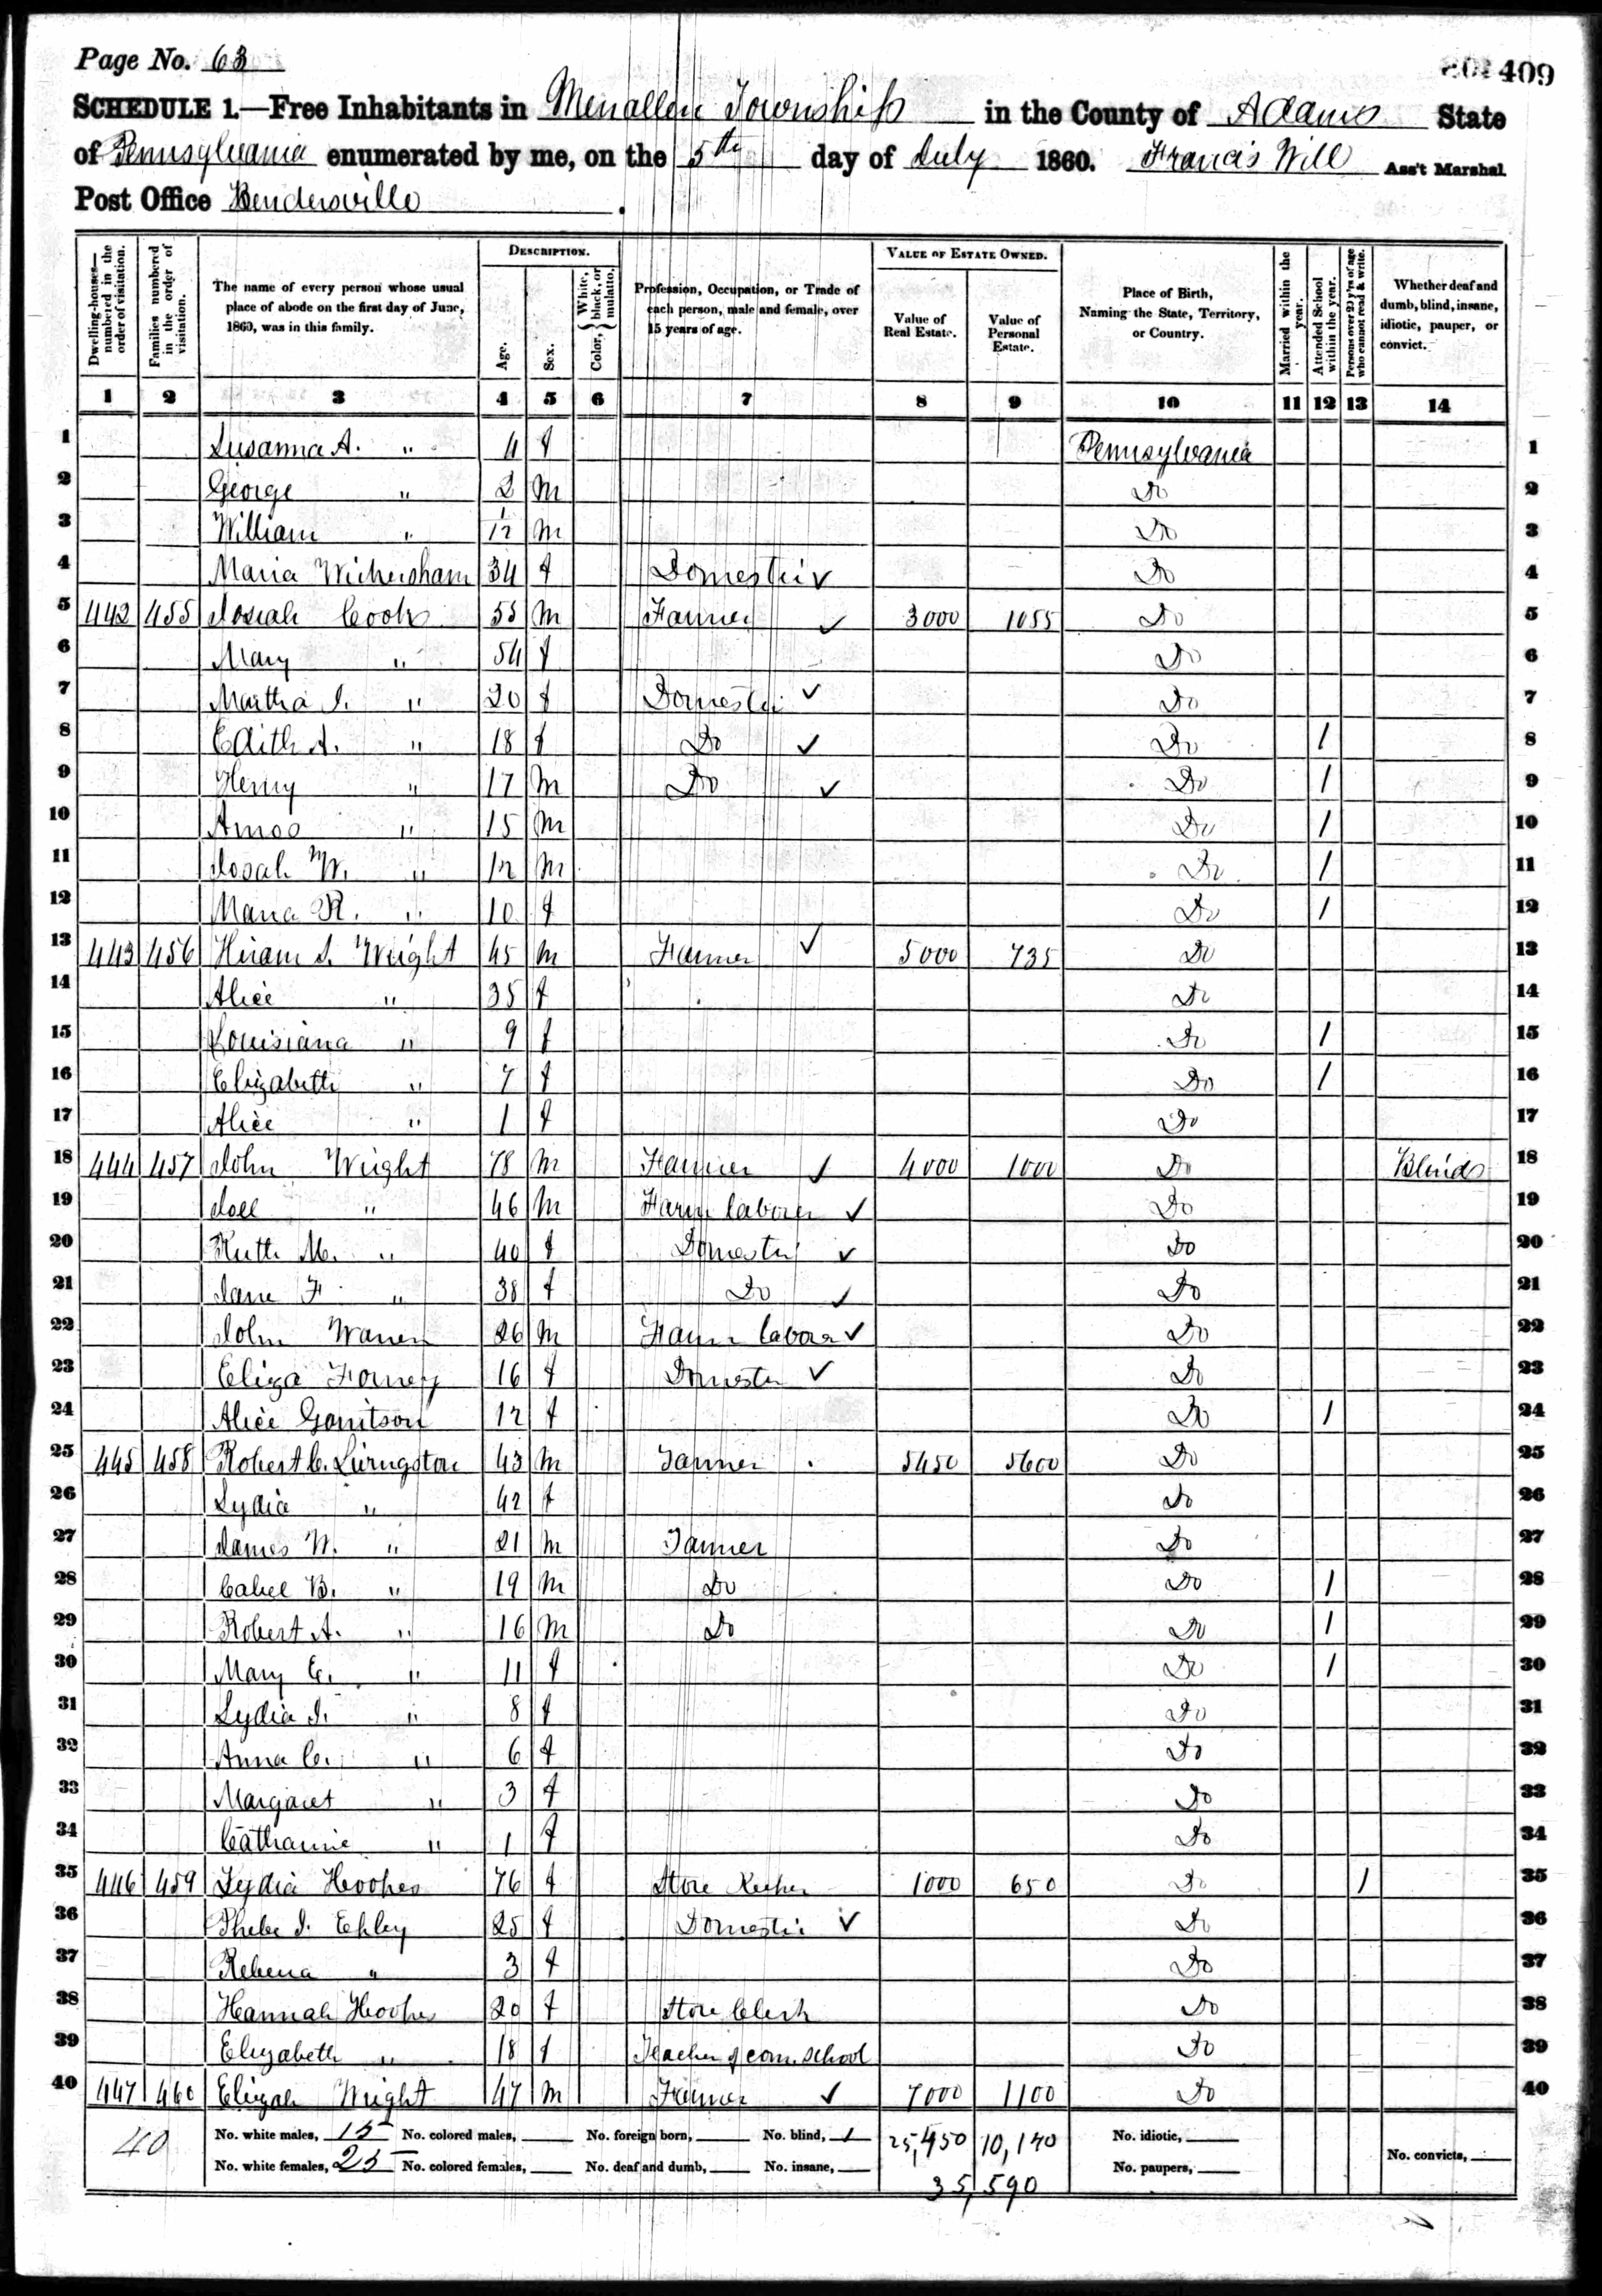 Page No. 63
409
SCHEDULE 1.—Free Inhabitants in Menallen Township in the County of Adams State
of Pennsylvania enumerated by me, on the 5th day of July 1860. Francis Will Ass't Marshal.
Post Office Bendersville.
Dwelling-houses—numbered in the order of visitation. Families numbered in the order of visitation. The name of every person whose usual place of abode on the first day of June, 1860, was in this family. DESCRIPTION. Age. Sex. Color, { White, black, or mulatto. Profession, Occupation, or Trade of each person, male and female, over 15 years of age. VALUE OF ESTATE OWNED. Value of Real Estate. Value of Personal Estate. Place of Birth, Naming the State, Territory, or Country. Married within the year. Attended School within the year. Persons over 20 y'rs of age who cannot read & write. Whether deaf and dumb, blind, insane, idiotic, pauper, or convict.
1 2 3 4 5 6 7 8 9 10 11 12 13 14
1 Susanna A. " 4 f Pennsylvania 1
2 George " 2 m Do 2
3 William " 1/12 m Do 3
4 Maria Wickersham 34 f Domestic ✓ Do 4
5 442 455 Josiah Cook 55 m Farmer ✓ 3000 1055 Do 5
6 Mary " 54 f Do 6
7 Martha J. " 20 f Domestic ✓ Do 7
8 Edith A. " 18 f Do ✓ Do 1 8
9 Henry " 17 m Do ✓ Do 1 9
10 Amos " 15 m Do 1 10
11 Josah W. " 12 m Do 1 11
12 Maria R. " 10 f Do 1 12
13 443 456 Hiram S. Wright 45 m Farmer ✓ 5000 735 Do 13
14 Alice " 35 f Do 14
15 Louisiana " 9 f Do 1 15
16 Elizabeth " 7 f Do 1 16
17 Alice " 1 f Do 17
18 444 457 John Wright 78 m Farmer ✓ 4000 1000 Do Blind 18
19 Joel " 46 m Farm laborer ✓ Do 19
20 Ruth M. " 40 f Domestic ✓ Do 20
21 Jane F. " 38 f Do ✓ Do 21
22 John Warren 26 m Farm labora ✓ Do 22
23 Eliza Forney 16 f Domestic ✓ Do 23
24 Alice 12 f Do 1 24
25 445 458 Robert C. Livingston 43 m Tanner 5450 5600 Do 25
26 Lydia " 42 f Do 26
27 James W. " 21 m Tanner Do 27
28 Calieb B. " 19 m Do Do 1 28
29 Robert A. " 16 m Do Do 1 29
30 Mary E. " 11 f Do 1 30
31 Lydia J. " 8 f Do 31
32 Anna C. " 6 f Do 32
33 Margaret " 3 f Do 33
34 Catharine " 1 f Do 34
35 446 459 Lydia Hoopes 76 f Store Keeper 1000 650 Do 1 35
36 Phebe J. Epley 25 f Domestic ✓ Do 36
37 " 3 f Do 37
38 Hannah Hoopes 20 f Store Clerk Do 38
39 Elizabeth " 18 f Teacher of com. School Do 39
40 447 460 Elizah Wright 47 m Farmer ✓ 7000 1100 Do 40
40 No. white males, 15 No. colored males, No. foreign born, No. blind, 1 25,450 10,140 No. idiotic,
No. white females, 25 No. colored females, No. deaf and dumb, No. insane, No. paupers, No. convicts,
35,590